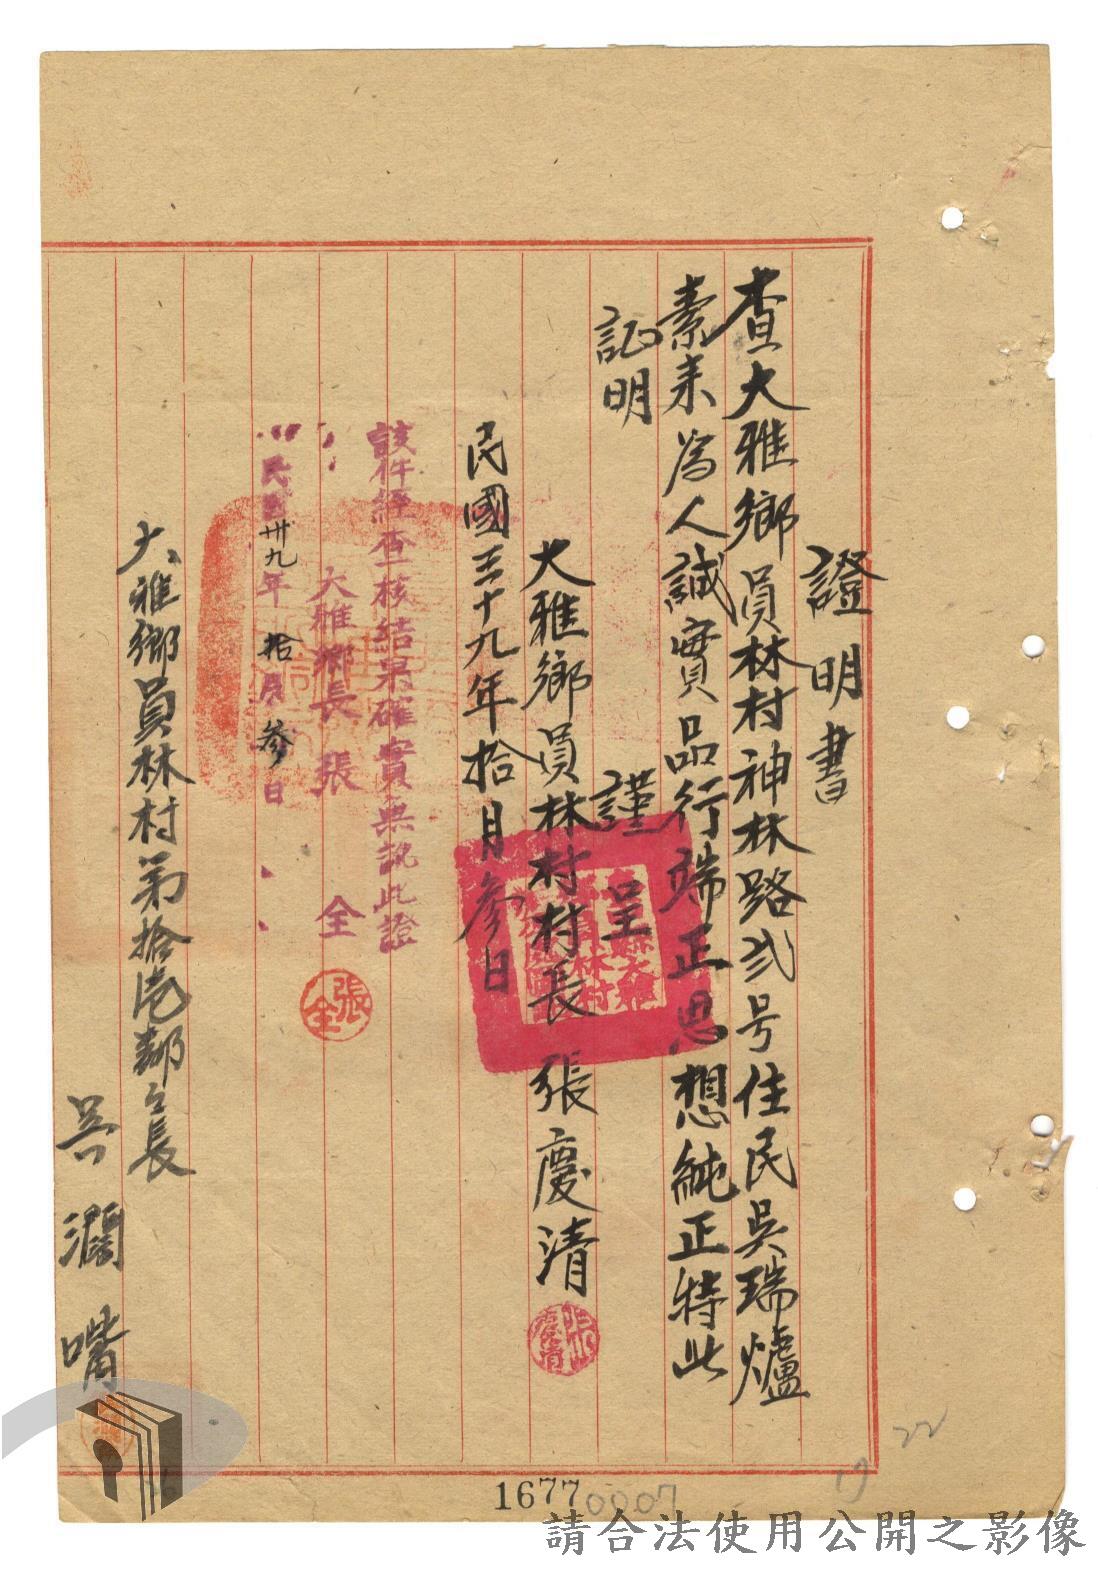 證明書
查大雅鄉員林村神林路弍号住民吳瑞爐
素来為人誠實品行端正思想純正特此
証明
謹呈
大雅鄉員林村村長張慶清
張慶清
民國三十九年拾月參日
該件經查核結果確實無訛此證
大雅鄉長張全
張全
民國卅九年拾月參日
大雅鄉員林村第拾壱鄰々長
吳濶嘴
1677
0007
19
22
請合法使用公開之影像